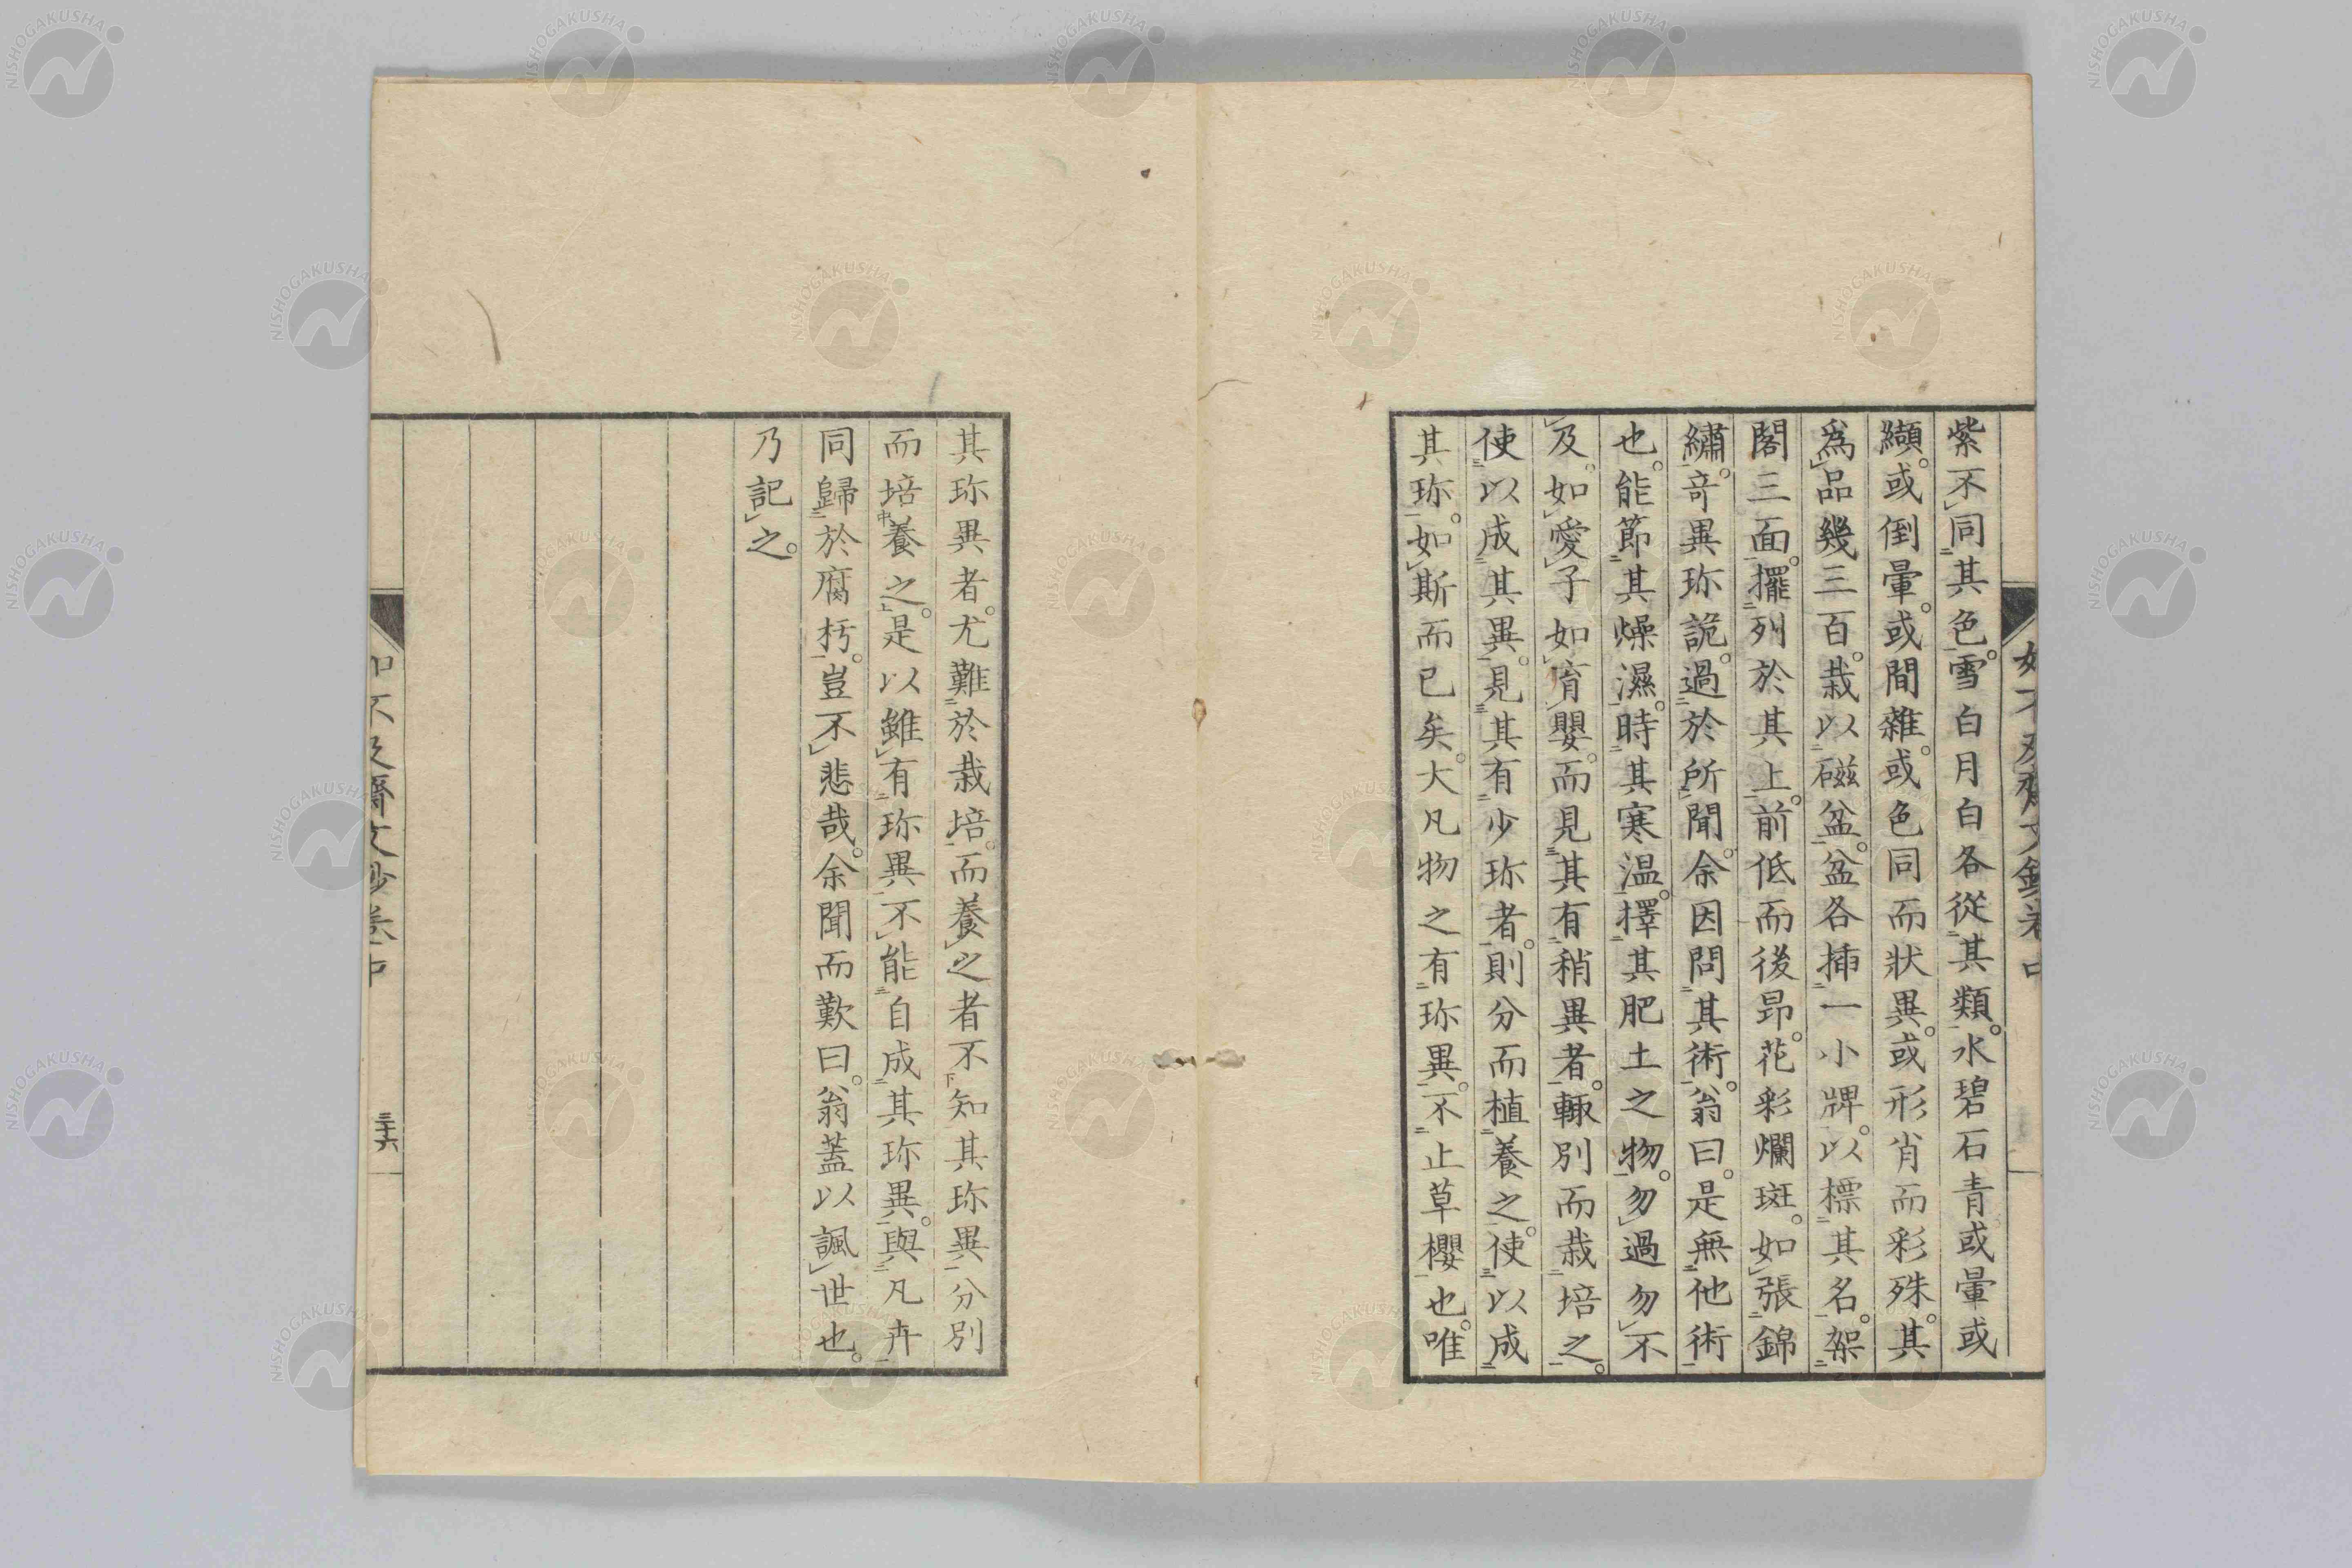 紫不同其色。雪白月白各從其類。水碧石青或暈或
纈。或倒暈。或間雜。或色同而狀異。或形肖而彩殊。其
爲品幾三百。栽以磁盆。盆各揷一小牌。以標其名。架
閣三面。擺列於其上。前低而後昂。花彩爛斑。如張錦
繡。奇異珎詭。過於所聞。余因問其術。翁曰。是無他術
也。能節其燥濕。時其寒温。擇其肥土之物。勿過勿不
及。如愛子如育嬰。而見其有稍異者。輙別而栽培之。
使以成其異。見其有少珎者。則分而植養之。使以成
其珎。如斯而已矣。大凡物之有珎異。不止草櫻也。唯
其珎異者。尤難於栽培。而養之者不知其珎異分別
而培養之。是以雖有珎異不能自成其珎異。與凡卉
同歸於腐朽。豈不悲哉。余聞而歎曰。翁蓋以諷世也。
乃記之。
如不及齋文鈔卷中
三十六
NISHOGAKUSHA